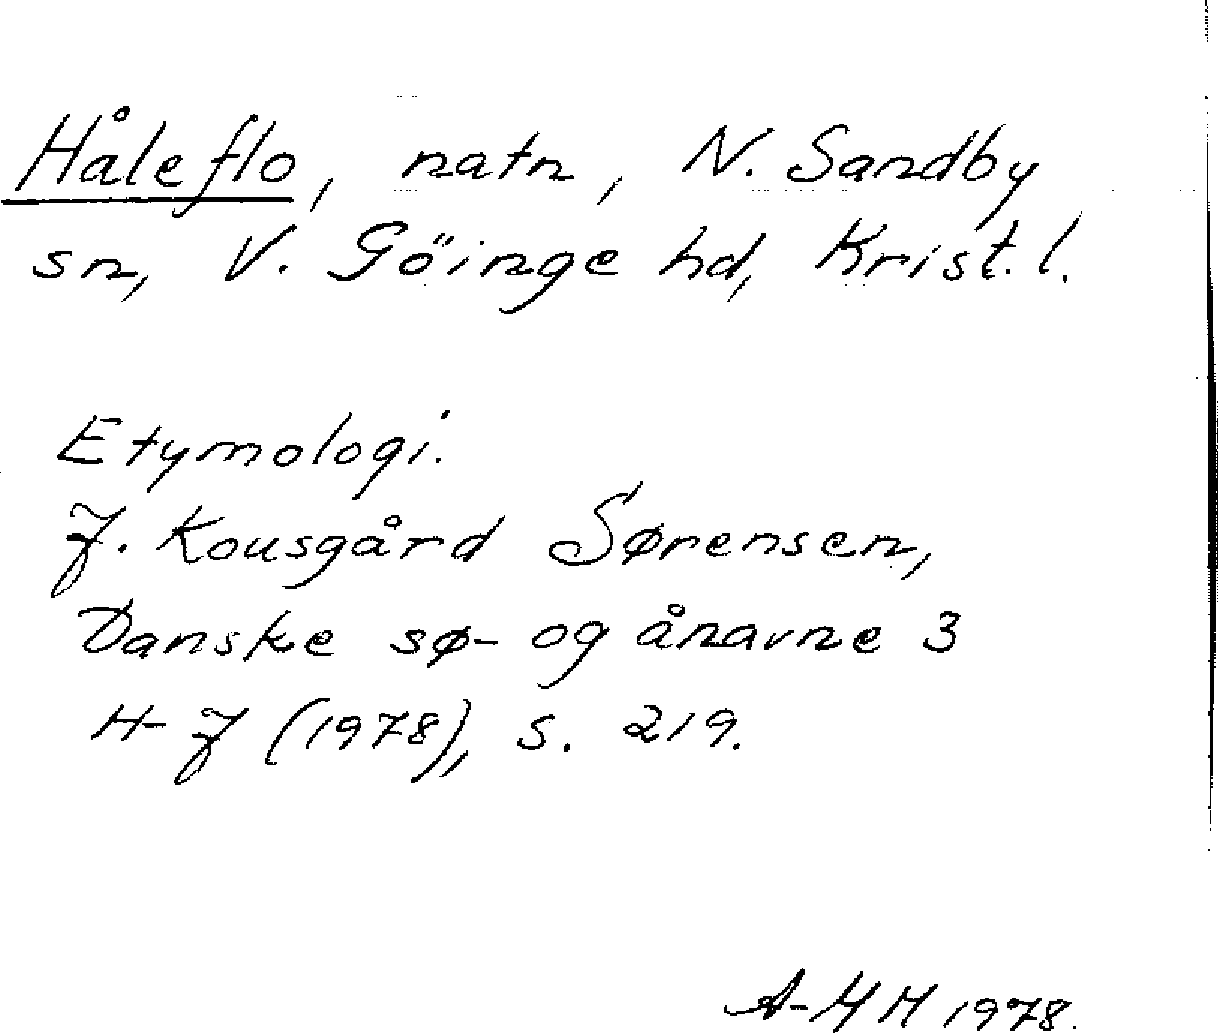 Håleflo, natn, N. Sandby
sn, V. Göinge hd, Krist. l.
Etymologi.
J. Kousgård Sørensen,
Danske sø- og ånavne 3
H-J (1978), s. 219.
A-YH 1978.